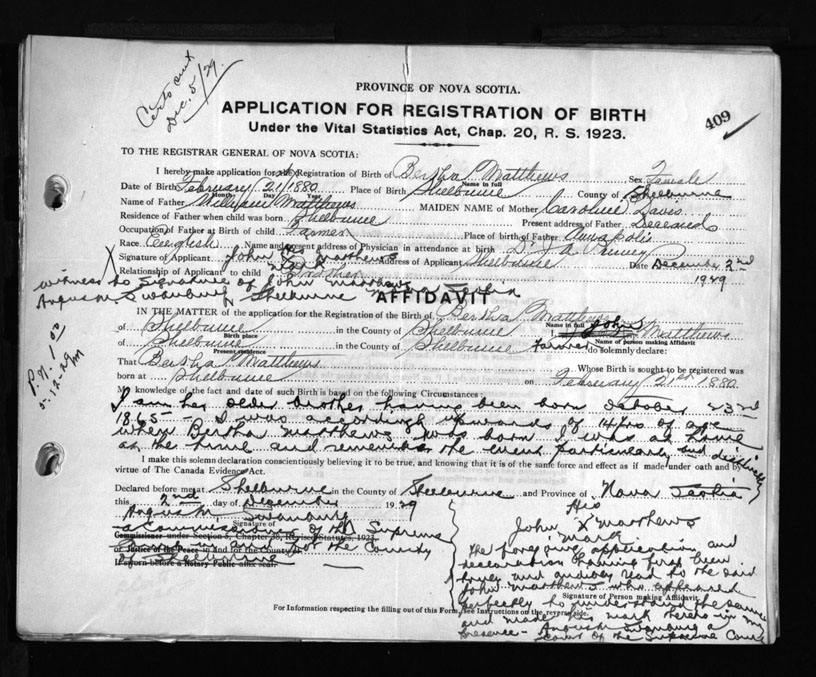 Certs sent
Dec. 5/29.
409
PROVINCE OF NOVA SCOTIA.
APPLICATION FOR REGISTRATION OF BIRTH
Under the Vital Statistics Act, Chap. 20, R. S. 1923.
TO THE REGISTRAR GENERAL OF NOVA SCOTIA:
I hereby make application for the Registration of Birth of Bertha Matthews Sex Female
Name in full
Date of Birth February 21 1880 Place of Birth Shelburne County of Shelburne
Month Day Year
Name of Father William Matthews MAIDEN NAME of Mother Caroline Davis
Residence of Father when child was born Shelburne Present address of Father Deceased
Occupation of Father at Birth of child Farmer Place of birth of Father Annapolis
Race English Name and present address of Physician in attendance at birth Dr
Signature of Applicant John his Matthews Address of Applicant Shelburne Date December 2nd
Relationship of Applicant to child mark Brother 1929
witness to signature of John Matthews
Angus M Swanburg Shelburne Nova Scotia
AFFIDAVIT
P.N. 1 00
5-12-29
IN THE MATTER of the application for the Registration of the Birth of Bertha Matthews
Name in full
of Shelburne in the County of Shelburne I, John Matthews
Birth place Name of person making Affidavit
of Shelburne in the County of Shelburne Farmer do solemnly declare:
Present residence
That Bertha Matthews Whose Birth is sought to be registered was
born at Shelburne on February 21st 1880
My knowledge of the fact and date of such Birth is based on the following Circumstances:
I am her older brother having been born October 23rd
1865 - I was accordingly upwards of 14 yrs of age
when Bertha Matthews was born I was at home
at the time and remember the event particularly and distinctly
I make this solemn declaration conscientiously believing it to be true, and knowing that it is of the same force and effect as if made under oath and by
virtue of The Canada Evidence Act.
Declared before me at Shelburne in the County of Shelburne and Province of Nova Scotia
this 2nd day of December 1929
Angus M Swanburg
Signature of
a Commissioner of the Supreme
Commissioner under Section 5, Chapter 38, Revised Statutes, 1923,
Court in and for the County
or Justice of the Peace in and for the County
of Shelburne
If sworn before a Notary Public affix seal.
his
John X Matthews
mark
The foregoing application and
declaration having first been
truly and audibly read to the said
John Matthews who appeared
Signature of Person making Affidavit.
perfectly to understand the same
For Information respecting the filling out of this Form, see Instructions on the reverse side.
and made his mark thereto in my
presence - Angus M Swanburg a
Court of the Supreme Court